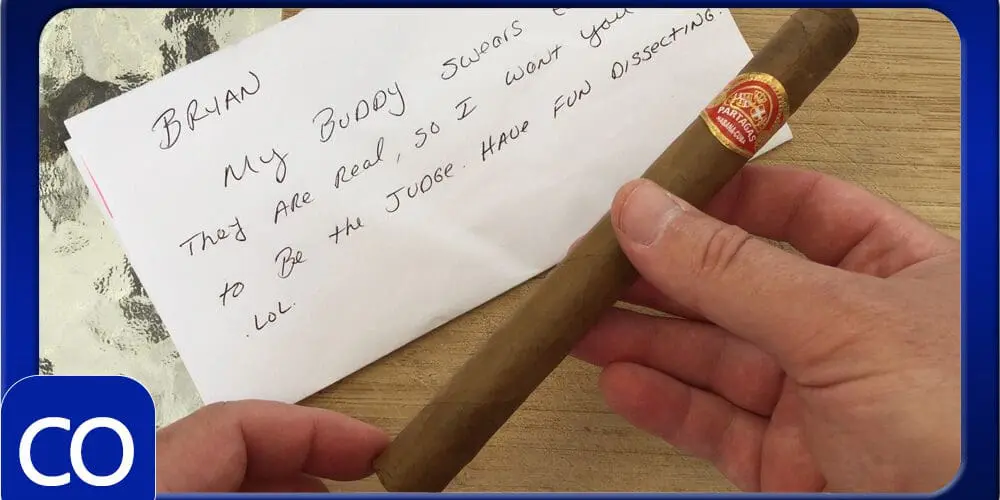 BRYAN
My BUDDY Swears
They ARe Real, so I wont you
to Be the JUDGe. HAVe FUN DISSecTING.
.LoL.
PARTAGAS
HABANA-CUBA
CO